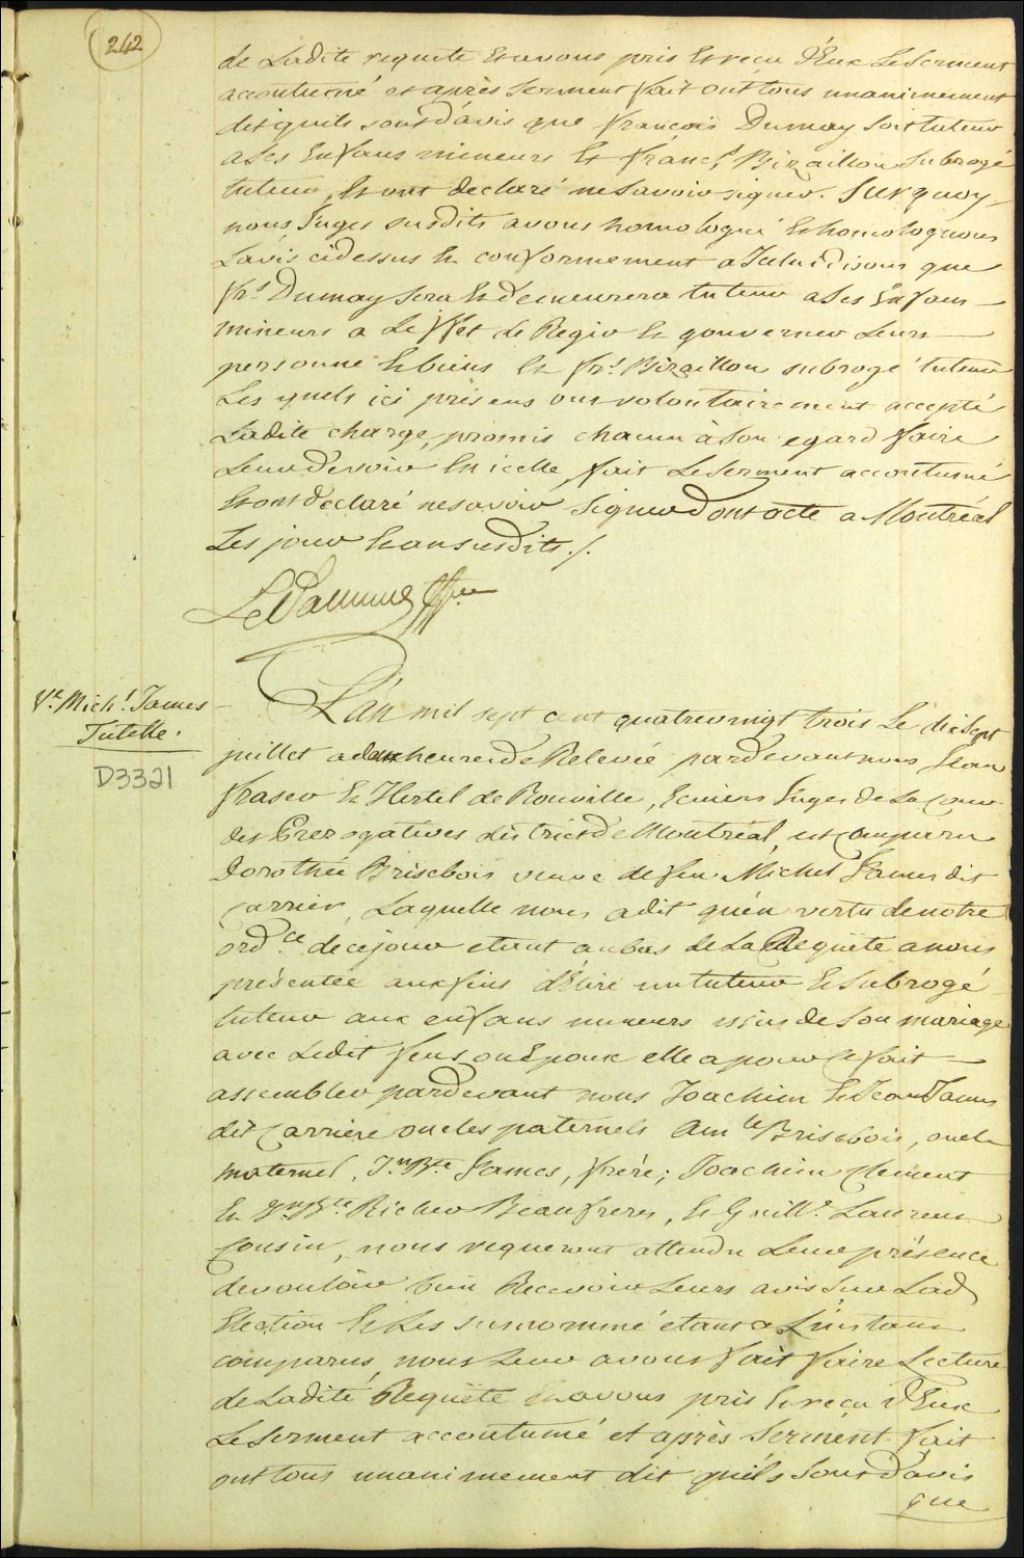 242
de Ladite requete Et avons pris Et reçu d'Eux Le Serment
accoutumé et après Serment fait ont tous unanimement
dit quils sont d'avis que françois Dumay Soit tuteur
a Ses Enfans mineurs Et franc.s Bizaillon Subrogé
tuteur, Et ont declaré ne Savoir signer. Surquoy
nous Juges susdits avons homologué Et homologuons
L'avis cidessus Et conformement a Icelui disons que
fr.s Dumay Sera Et demeurera tuteur a Ses Enfans
mineurs a Leffet de Regir Et gouverner Leurs
personne Et biens Et fr.s Bizaillon subrogé tuteur
Les quels ici présens ont volontairement accepté
Ladite charge, promis chacun à Son egard faire
Leur devoir En icelle, fait Le Serment accoutumé
Et ont declaré ne savoir Signer Dont acte a Montréal
Les jour Et an susdits ./.
Ve Mich.l James
Tutelle.
D3321
L'an mil sept cent quatrevingt trois Le dix Sept
juillet a deux heures de Relevée pardevant nous Jean
fraser Et Hertel de Rouville, Ecuiers Juges de La Cour
des Prerogatives district de Montréal, est comparu
Dorothée Brisebois veuve de feu Michel James dit
Carrier, Laquelle nous a dit qu'en vertu de notre
ord.ce de ce jour etant au bas de La Requête a nous
présentée aux fins d'Elire un tuteur Et Subrogé
tuteur aux enfans mineurs issus de Son mariage
avec Ledit feu son Epoux elle a pour ce fait
assembler pardevant nous Joachim Et Jean James
dit Carriere oncles paternels Am.ble Brisebois, oncle
maternel, J.n Bte James, frère; Joachim Clement
Et J.n Bte Richer Beaufreres, Et Guill.e Laurent
Cousin, nous requerant attendu Leur présence
de vouloir bien Recevoir Leurs avis Sur Lad.
Election Et Les surnommé étant a L'instant
comparus, nous Leur avons fait faire Lecture
de Ladite Requête Et avons pris Et reçu d'Eux
Le Serment accoutumé et après Serment fait
ont tous unanimement dit quils Sont d'avis
que